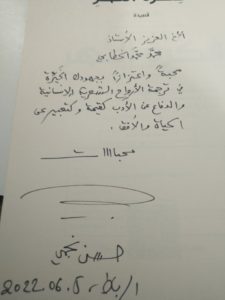 قصيدة
الأخ العزيز الأستاذ
محمد محمد الخطابي
محبةً واعتزازًا بجهودك الكبيرة
في ترجمة الأرواح الشعرية الإنسانية
والدفاع عن الأدب كقيمة وكتعبير عن
الحياة والأفق.
حسن نجمي
الرباط، 2022.06.5